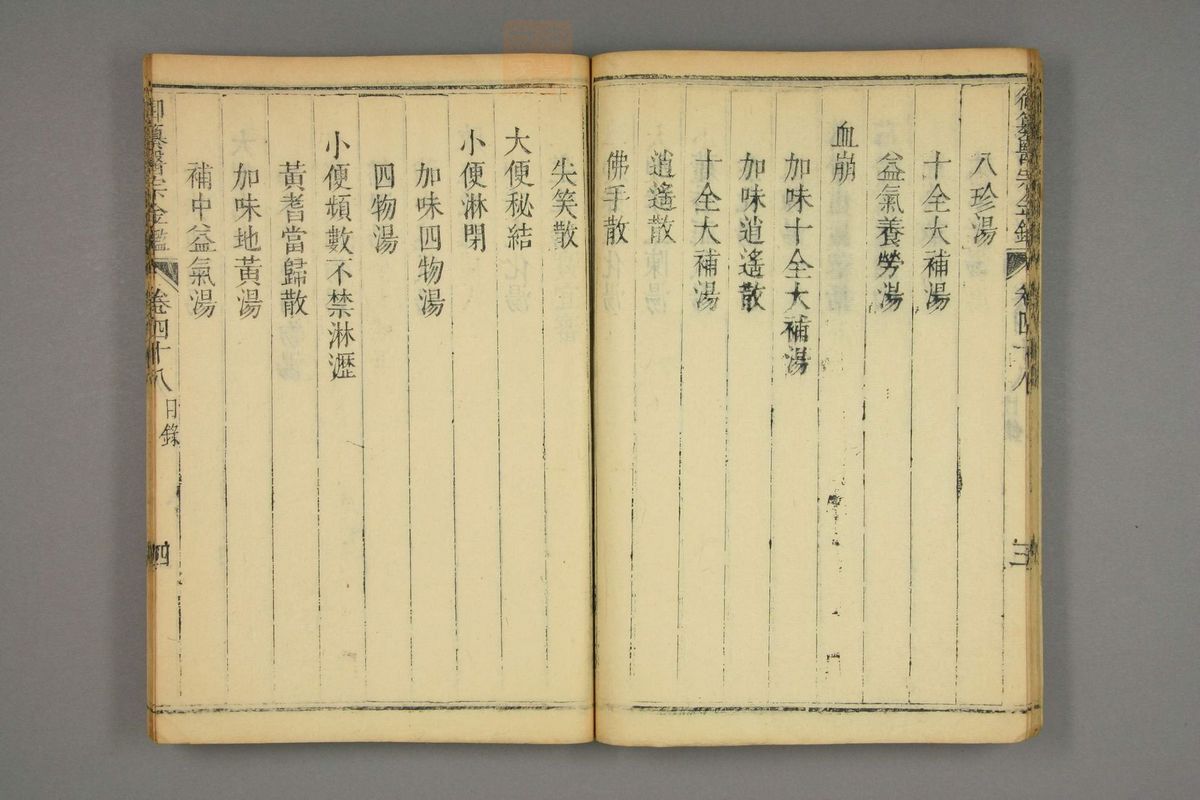 御纂醫宗金鑑 卷四十八 目錄 三
八珍湯
十全大補湯
益氣養勞湯
血崩
加味十全大補湯
加味逍遙散
十全大補湯
逍遙散
佛手散
失笑散
大便秘結
小便淋閉
加味四物湯
四物湯
小便頻數不禁淋瀝
黃耆當歸散
加味地黃湯
補中益氣湯
御纂醫宗金鑑 卷四十八 目錄 四